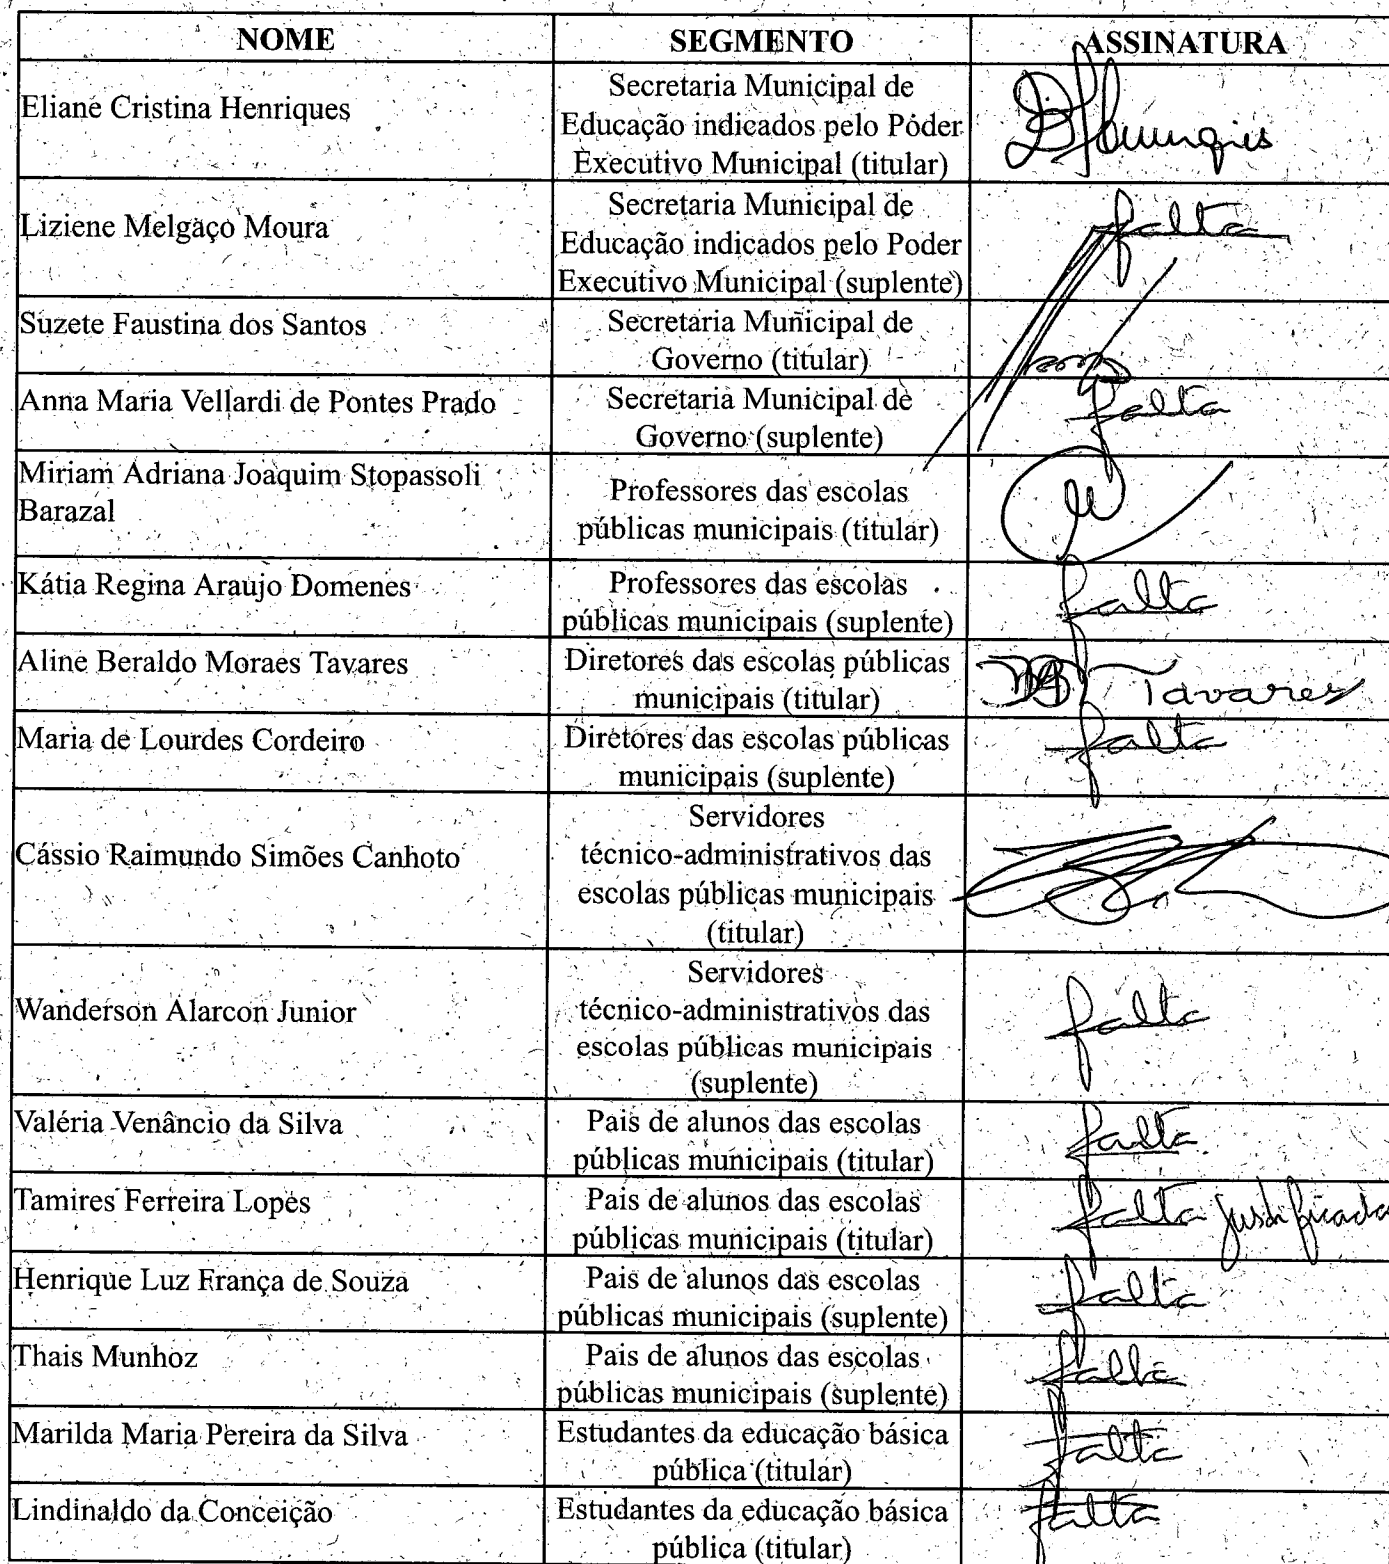 NOME SEGMENTO ASSINATURA
Eliane Cristina Henriques
Secretaria Municipal de
Educação indicados pelo Poder
Executivo Municipal (titular)
Liziene Melgaço Moura
Secretaria Municipal de
Educação indicados pelo Poder
Executivo Municipal (suplente)
falta
Suzete Faustina dos Santos
Secretaria Municipal de
Governo (titular)
Anna Maria Vellardi de Pontes Prado
Secretaria Municipal de
Governo (suplente)
falta
Miriam Adriana Joaquim Stopassoli
Barazal
Professores das escolas
públicas municipais (titular)
Kátia Regina Araujo Domenes
Professores das escolas
públicas municipais (suplente)
falta
Aline Beraldo Moraes Tavares
Diretores das escolas públicas
municipais (titular)
Tavares
Maria de Lourdes Cordeiro
Diretores das escolas públicas
municipais (suplente)
falta
Cássio Raimundo Simões Canhoto
Servidores
técnico-administrativos das
escolas públicas municipais
(titular)
Wanderson Alarcon Junior
Servidores
técnico-administrativos das
escolas públicas municipais
(suplente)
falta
Valéria Venâncio da Silva
Pais de alunos das escolas
públicas municipais (titular)
falta
Tamires Ferreira Lopes
Pais de alunos das escolas
públicas municipais (titular)
falta justificada
Henrique Luz França de Souza
Pais de alunos das escolas
públicas municipais (suplente)
falta
Thais Munhoz
Pais de alunos das escolas
públicas municipais (suplente)
falta
Marilda Maria Pereira da Silva
Estudantes da educação básica
pública (titular)
falta
Lindinaldo da Conceição
Estudantes da educação básica
pública (titular)
falta